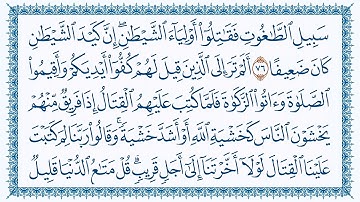 سَبِيلِ ٱلطَّٰغُوتِ فَقَٰتِلُوٓا۟ أَوْلِيَآءَ ٱلشَّيْطَٰنِ ۖ إِنَّ كَيْدَ ٱلشَّيْطَٰنِ
كَانَ ضَعِيفًا ٧٦ أَلَمْ تَرَ إِلَى ٱلَّذِينَ قِيلَ لَهُمْ كُفُّوٓا۟ أَيْدِيَكُمْ وَأَقِيمُوا۟
ٱلصَّلَوٰةَ وَءَاتُوا۟ ٱلزَّكَوٰةَ فَلَمَّا كُتِبَ عَلَيْهِمُ ٱلْقِتَالُ إِذَا فَرِيقٌ مِّنْهُمْ
يَخْشَوْنَ ٱلنَّاسَ كَخَشْيَةِ ٱللَّهِ أَوْ أَشَدَّ خَشْيَةً ۚ وَقَالُوا۟ رَبَّنَا لِمَ كَتَبْتَ
عَلَيْنَا ٱلْقِتَالَ لَوْلَآ أَخَّرْتَنَآ إِلَىٰٓ أَجَلٍ قَرِيبٍ ۗ قُلْ مَتَٰعُ ٱلدُّنْيَا قَلِيلٌ